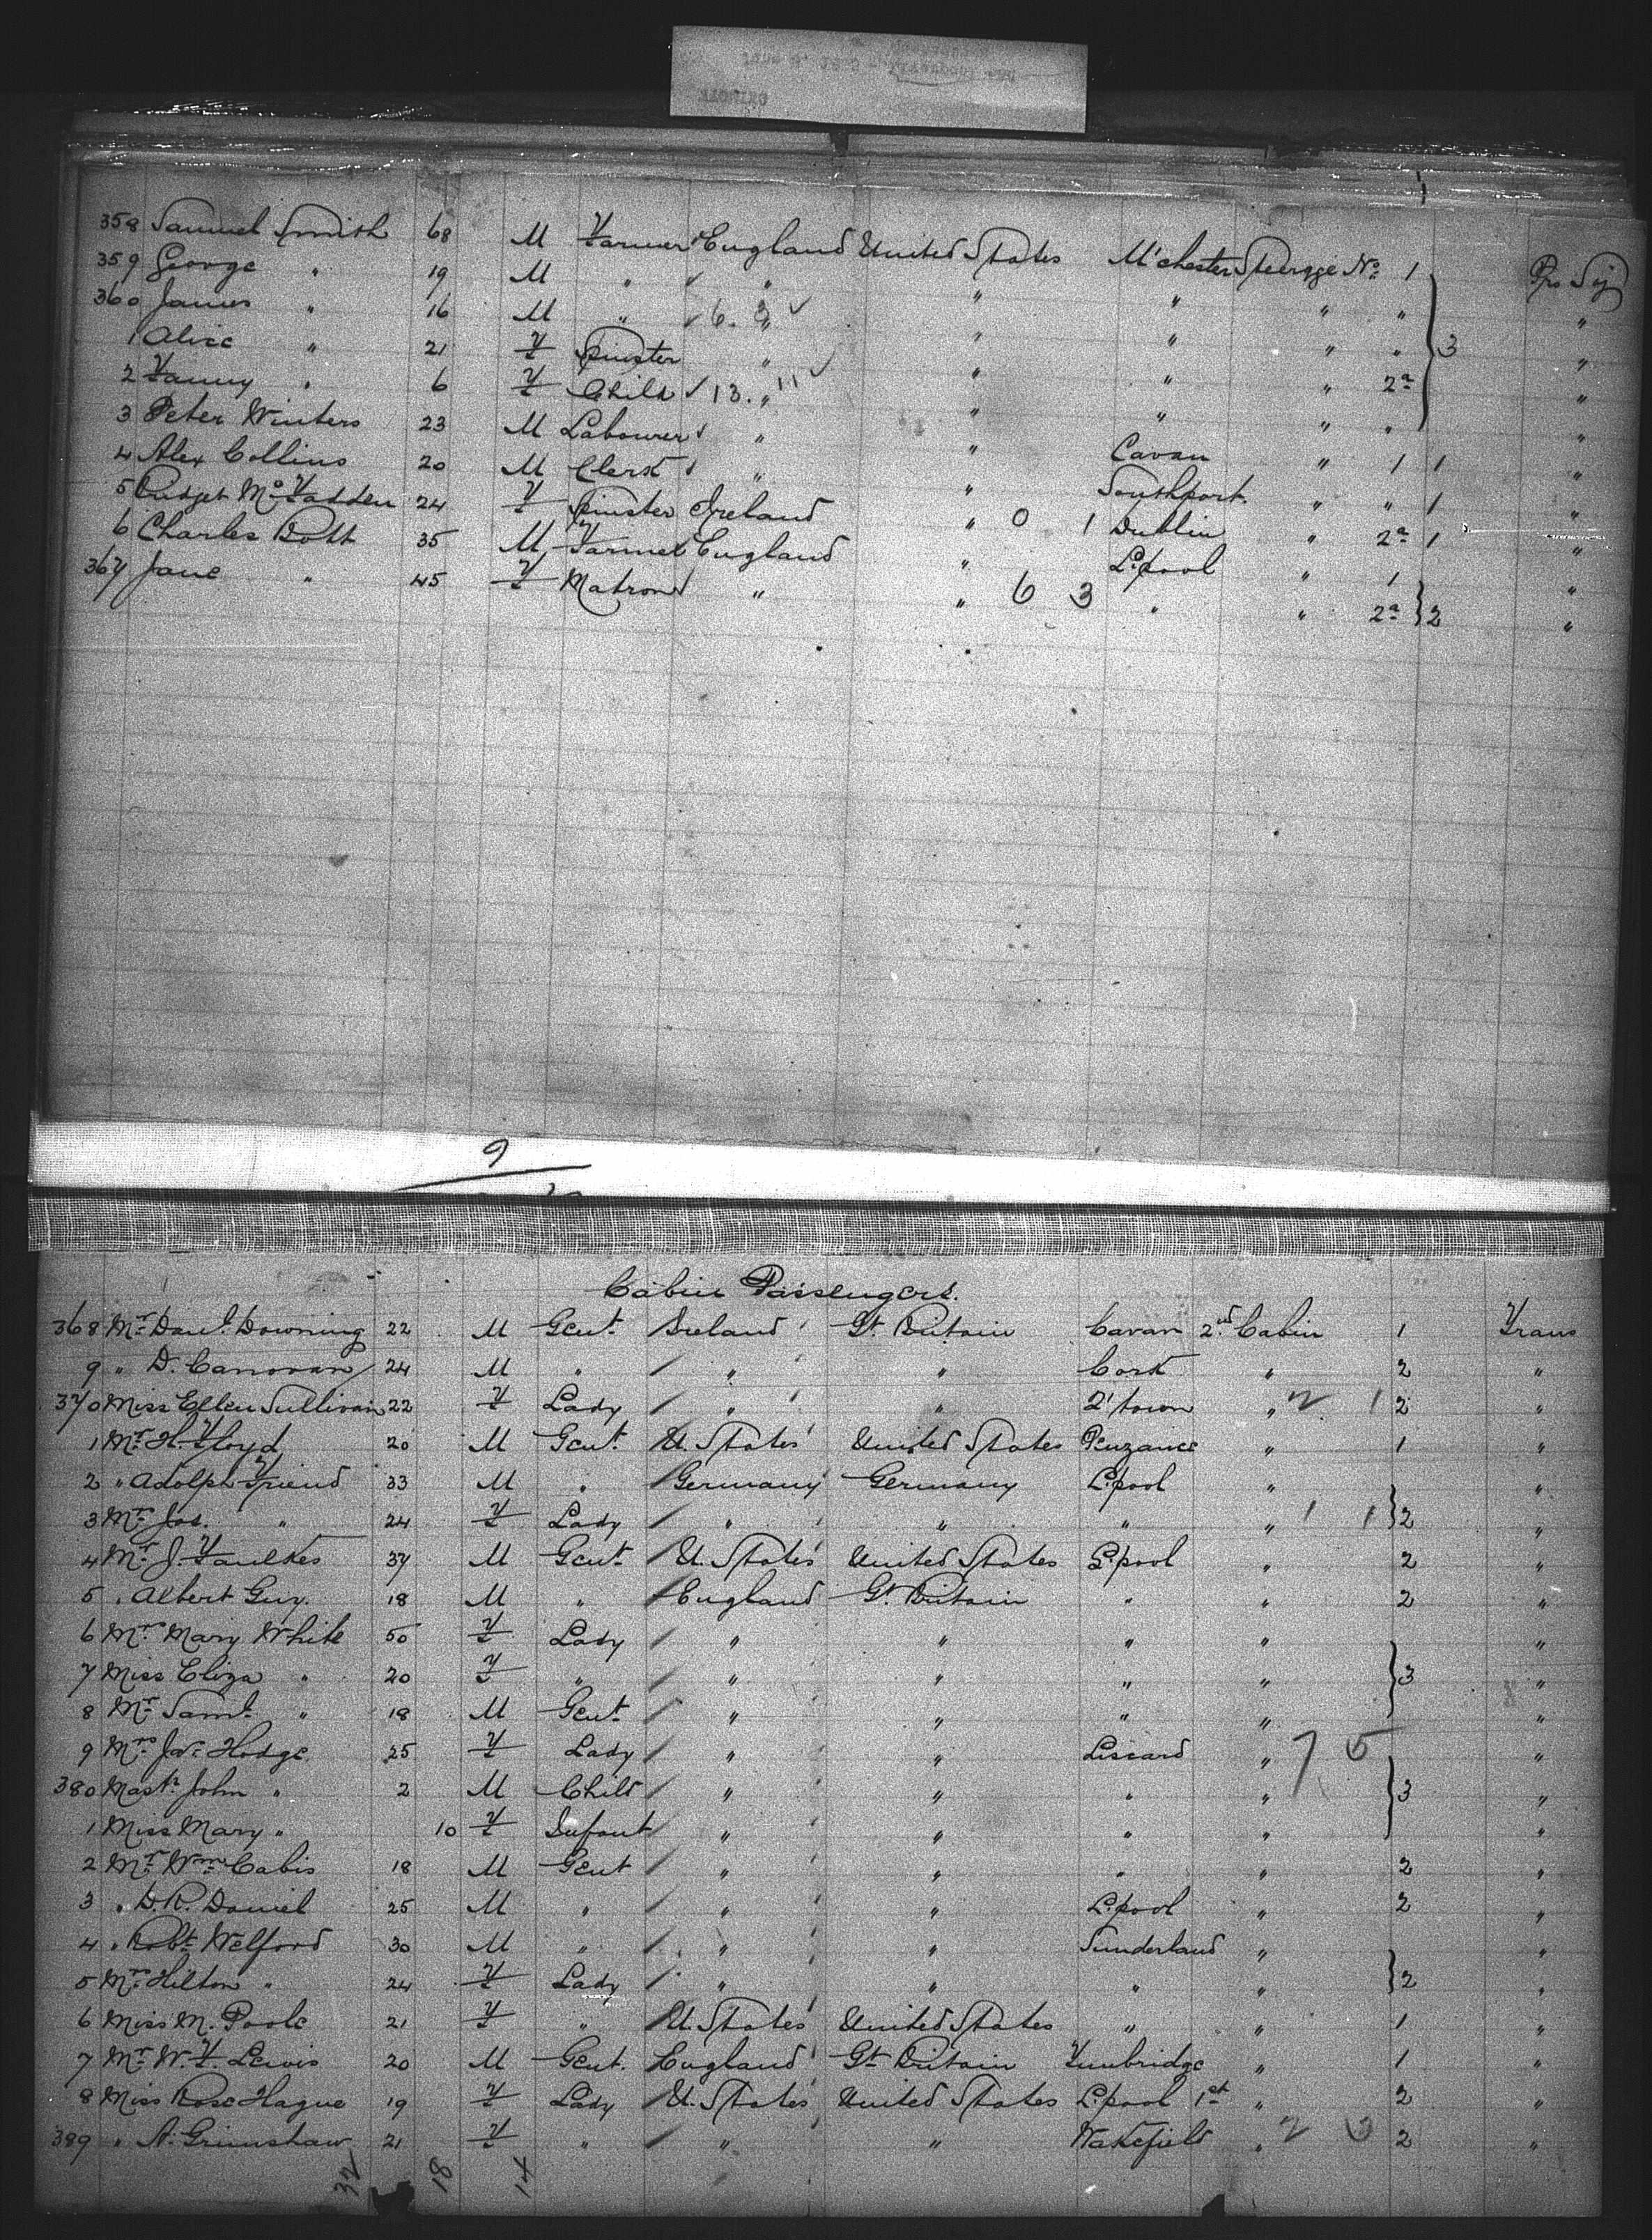 358 Samuel Smith 68 M Farmer England United States M'chester Steerage No 1 Pro Soj
359 George " 19 M " " " " " " "
360 James " 16 M " " " " " " "
1 Alice " 21 F Spinster " " " " 2a 3 "
2 Fanny " 6 F Child " " " " " "
3 Peter Winters 23 M Labourer " " Cavan " 1 1 "
4 Alex Collins 20 M Clerk " " Southport " " 1 "
5 Bridget McFadden 24 F Spinster Ireland " 0 1 Dublin " 2a 1 "
6 Charles Bott 35 M Farmer England " L'pool " 1 "
367 Jane " 45 F Matron " " 6 3 " " 2a 2 "
9
Cabin Passengers.
368 Mr Danl. Downing 22 M Gent. Ireland Gt. Britain Cavan 2nd Cabin 1 Trans
9 " D. Canovan 24 M " " " Cork " 2 "
370 Miss Ellen Sullivan 22 F Lady " " Q'town " 2 1 2 "
1 Mr H. Floyd 20 M Gent. U. States United States Penzance " 1 "
2 " Adolph Friend 33 M " Germany Germany L'pool " "
3 Mrs Jos. " 24 F Lady " " " " 1 1 2 "
4 Mr J. Faulkes 37 M Gent U. States United States L'pool " 2 "
5 " Albert Guy. 18 M " England Gt. Britain " " 2 "
6 Mrs Mary White 50 F Lady " " " " "
7 Miss Eliza " 20 F " " " " " 3 "
8 Mr Saml. " 18 M Gent " " " " "
9 Mrs Jno. Hodge 25 F Lady " " Liscard " 7 5 "
380 Mastr John " 2 M Child " " " " 3 "
1 Miss Mary " 10 F Infant " " " " "
2 Mr Wm Cabis 18 M Gent " " " " 2 "
3 " D. R. Daniel 25 M " " " L'pool " 2 "
4 " Robt Welford 30 M " " " Sunderland " "
5 Mrs Hilton " 24 F Lady " " " " 2 "
6 Miss M. Poole 21 F " U. States United States " " 1 "
7 Mr W. F. Lewis 20 M Gent. England Gt Britain Tunbridge " 1 "
8 Miss Rose Hague 19 F Lady U. States United States L'pool 1st " 2 "
389 " A. Grimshaw 21 F " " " Wakefield " 2 3 2 "
32 18 14